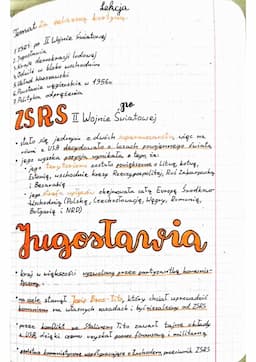 Lekcja
Temat: Za żelazną kurtyną.
1. ZSRS po II Wojnie Światowej
2. Jugosławia
3. Kraje demokracji ludowej
4. Odwilż w bloku wschodnim
5. Układ Warszawski
6. Powstanie węgierskie w 1956r.
7. Polityka odprężenia
ZSRS po II Wojnie Światowej
• stało się jednym z dwóch supermocarstw, więc na
równi z USA decydowało o losach powojennego świata
• jego wysoka pozycja wynikała z tego, że:
• jego terytorium zostało powiększone o Litwę, Łotwę,
Estonię, wschodnie kresy Rzeczypospolitej, Ruś Zakarpacką
i Besarabię
• jego strefa wpływów obejmowała całą Europę Środkowo-
Wschodnią (Polskę, Czechosłowację, Węgry, Rumunię,
Bułgarię i NRD)
Jugosławia
• kraj w większości wyzwolony przez partyzantkę komunis-
tyczną
• na czele stanął Josip Broz-Tito, który chciał wprowadzić
komunizm na własnych zasadach i być niezależny od ZSRS
• przez konflikt ze Stalinem Tito zawarł tajne układy
z USA, dzięki czemu uzyskał pomoc finansową i militarną
• państwo komunistyczne współpracujące z zachodem przeciwnik ZSRS